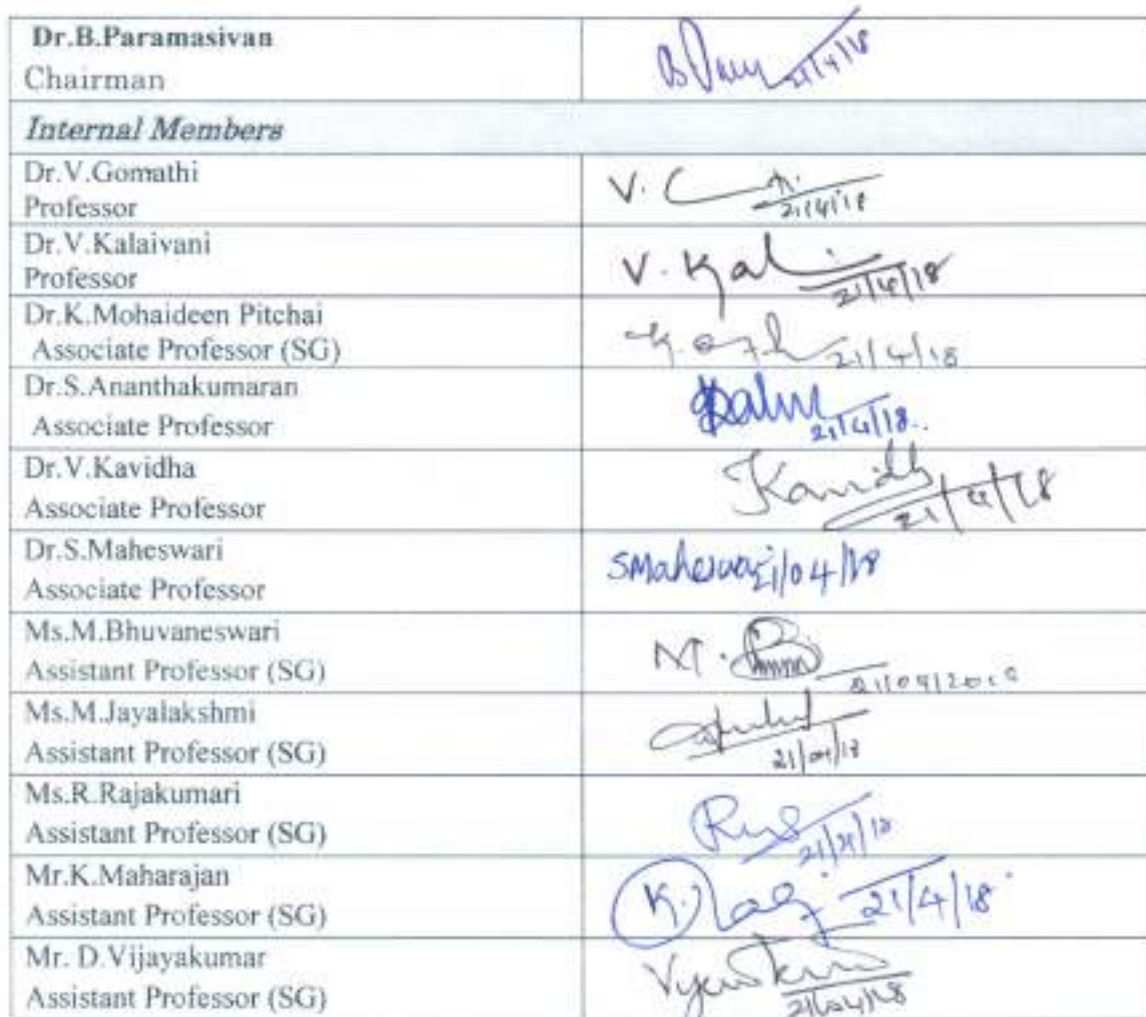 Dr.B.Paramasivan
Chairman
21/4/18
Internal Members
Dr.V.Gomathi
Professor
V.
21/4/18
Dr.V.Kalaivani
Professor
V. Kal
21/4/18
Dr.K.Mohaideen Pitchai
Associate Professor (SG)
21/4/18
Dr.S.Ananthakumaran
Associate Professor
21/4/18
Dr.V.Kavidha
Associate Professor
21/4/18
Dr.S.Maheswari
Associate Professor
21/04/18
Ms.M.Bhuvaneswari
Assistant Professor (SG)
M.
Ms.M.Jayalakshmi
Assistant Professor (SG)
21/04/18
Ms.R.Rajakumari
Assistant Professor (SG)
Mr.K.Maharajan
Assistant Professor (SG)
K.
21/4/18
Mr. D.Vijayakumar
Assistant Professor (SG)
21/04/18